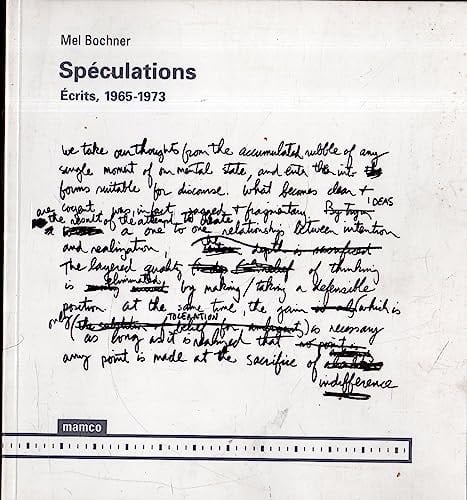 Mel Bochner
Spéculations
Écrits, 1965-1973
we take our thoughts from the accumulated rubble of any
single moment of our mental state, and enter them into
forms suitable for discourse. What becomes clear +
IDEAS
cogent, was in fact jagged + fragmentary. By
are the result of the attempt to
a one to one relationship between intention
and realization, depth is sacrificed
The layered quality of thinking
is eliminated by making/taking a defensible
position. at the same time, the gain (which is
TOLERATION
only (the belief for) is necessary
as long as it is realized that
any point is made at the sacrifice of
indifference
mamco